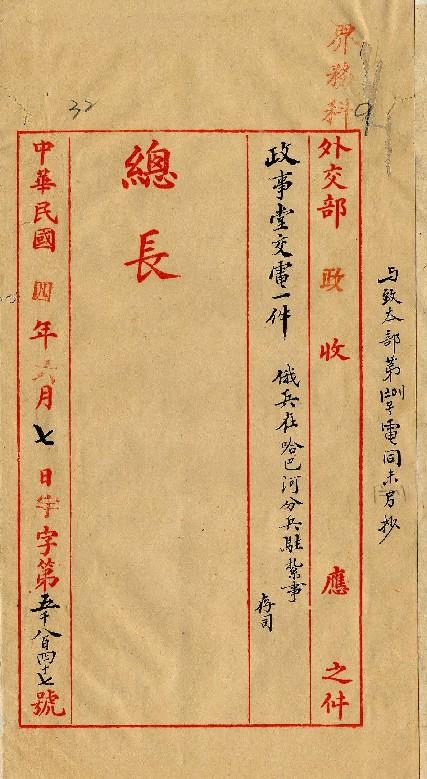 界務科
32
与致本部第 號電同未另抄
外交部 政 收 應 之件
政事堂交電一件 俄兵在哈巴河分兵駐紮事
存司
總長
中華民國四年六月七日 字第五千八百四十七號